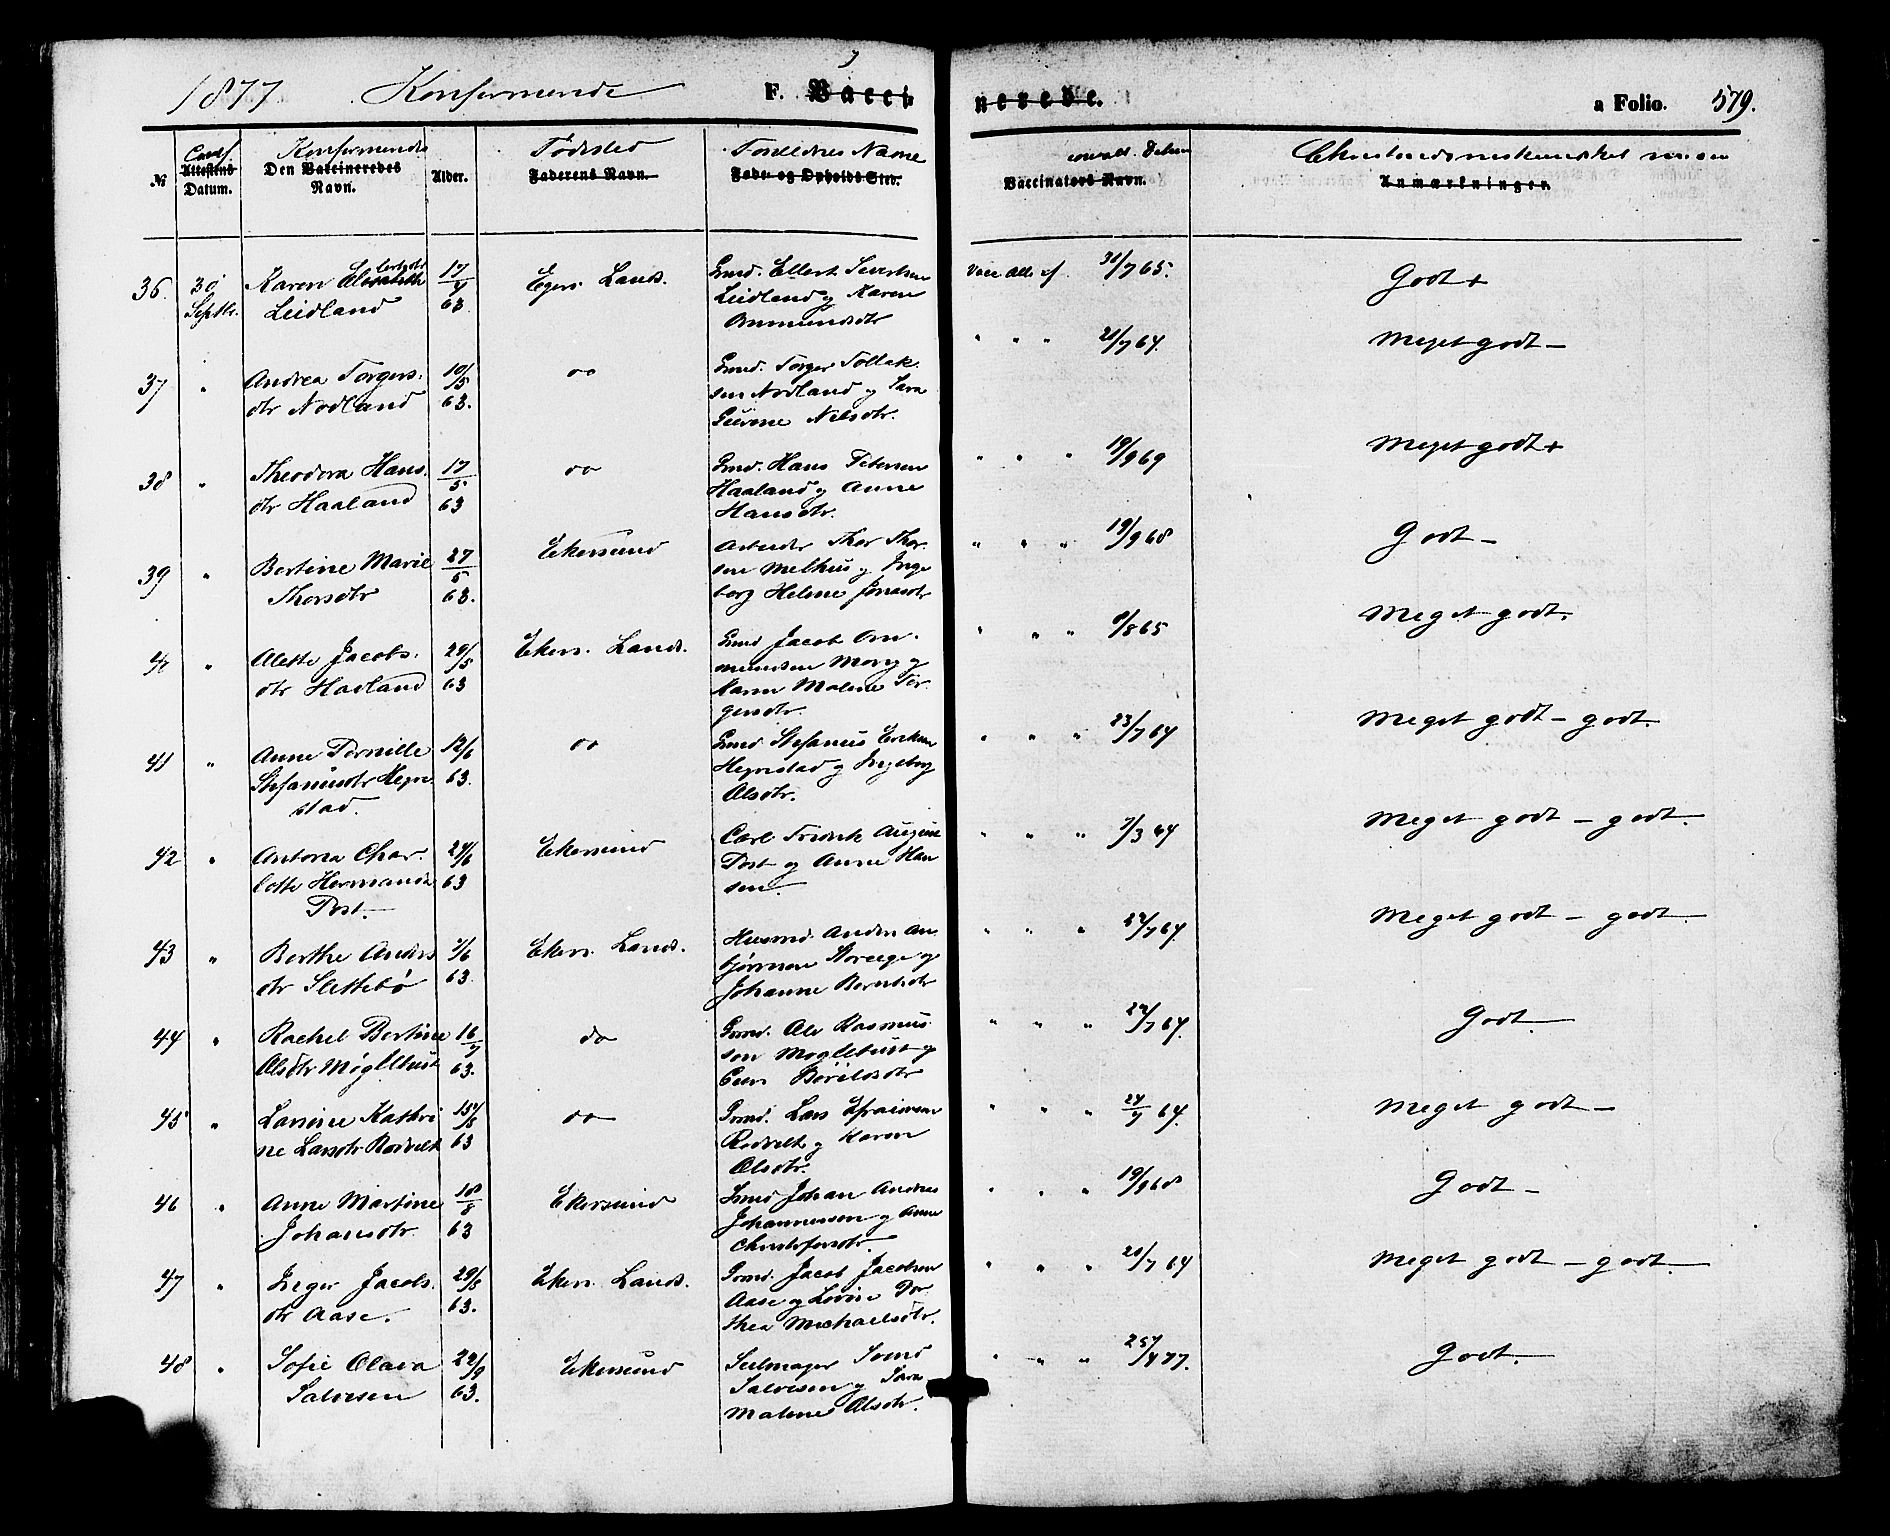 1877. Konfirmerede F. Vacci-
nerede. a Folio. 579.
No
Conf.
Attestens
Datum.
Konfirmerede
Den Vaccineredes
Navn.
Alder.
Fødested
Faderens Navn.
Forældres Navne
Føde- og Opholds-Sted.
Vaccinators Navn.
Christendomskundskab
Anmærkninger.
36. 30 Septbr. Karen
Leidland
17/4 63
Egers. Lands.
Gmd. Ellert Sivertsen
Leidland og Karen
Ommundsdtr
Vacc. Att. af 31/7 65.
Godt +
37 " Andrea Torgers-
dtr Nodland
10/5 63.
do
Gmd. Torger Tollak-
sen Nodland og Sara
Nilsdtr.
" " " 21/7 64.
Meget godt -
38 " Theodora Hans-
dtr Haaland
17/5 63
do
Gmd. Hans Petersen
Haaland og Anne
Hansdtr.
" " " 19/9 69
Meget godt +
39 " Bertine Marie
Thorsdtr
27/5 63.
Ekersund
Arbeider Thor Thor-
sen Melhus og Inge-
borg Helene Jonasdtr
" " " 19/9 68
Godt -
40 " Alette Jacobs-
dtr Havland
29/5 63
Ekers. Lands.
Gmd Jacob Om-
mundsen Mong og
Karen Malene Tor-
gersdtr.
" " " 9/8 65
Meget godt.
41 " Anne Pernille
Stefanusdtr Hegre-
stad.
12/6 63.
do
Gmd Stefanus Eriksen
Hegrestad og Ingeborg
Olsdtr.
" " " 23/7 64
Meget godt - godt.
42 " Antona Char-
lotte Hermanda
Post.
24/6 63
Ekersund
Carl Fredrik August
Post og Anne Han-
sen.
" " " 7/3 64
Meget godt - godt.
43 " Berthe Anders-
dtr Slettebø
7/6 63
Ekers. Lands.
Husmd. Anders As-
bjørnsen og
Johanne Berntsdtr
" " " 27/7 64.
Meget godt - godt.
44 " Rachel Bertine
Olsdtr Møgllbust
16/7 63.
do
Gmd. Ole Rasmus-
sen Møgllbust og
Børildsdtr
" " " 27/7 64.
Godt.
45 " Larsine Kathri-
ne Larsdtr Rodvelt
15/8 63
do
Gmd. Lars Efraimsen
Rodvelt og Karen
Olsdtr.
" " " 27/7 64.
Meget godt -
46 " Anne Martine
Johansdtr.
18/8 63
Ekersund
Smed Johan Andreas
Johannesen og Anne
Christofersdtr.
" " " 19/9 68
Godt -
47 " Inger Jacobs-
dtr Aase.
29/8 63.
Ekers. Lands.
Gmd. Jacob Jacobsen
Aase og Lovise Do-
thea Michaelsdtr.
" " " 20/7 64
Meget godt - godt.
48 " Sofie Olava
Salvesen
22/9 63.
Ekersund
Seilmager Svend
Salvesen og Sara
Malene Olsdtr.
" " " 25/4 77.
Godt.